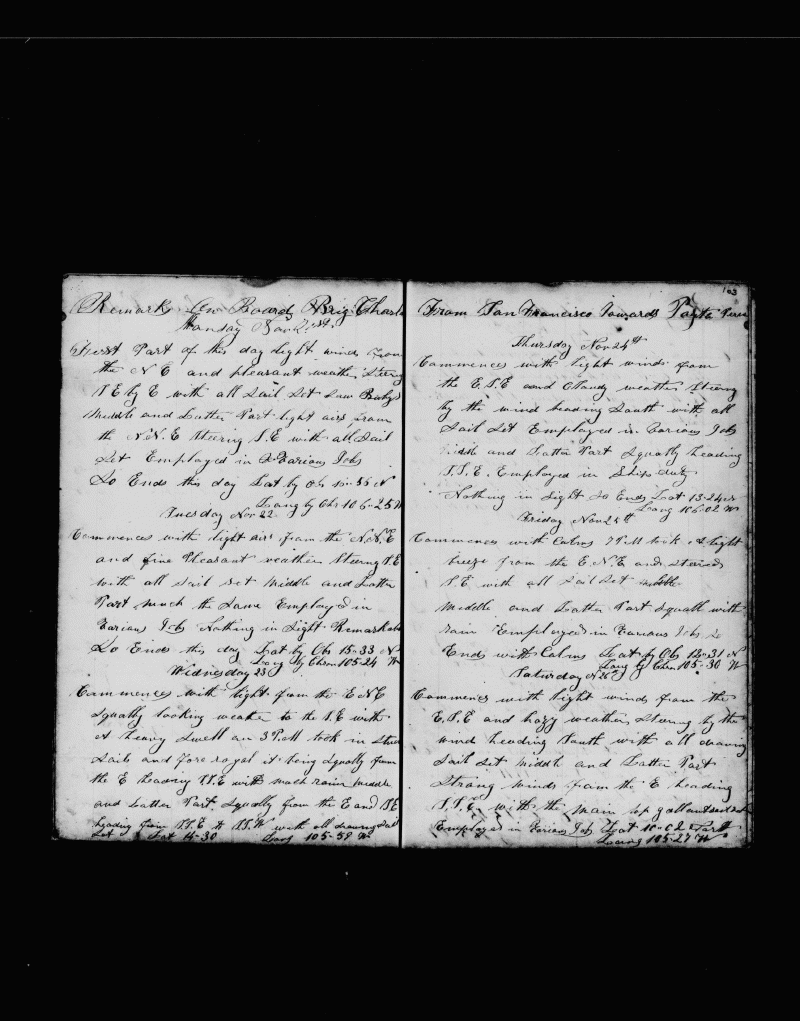 Remarks On Board Brig Charl
Monday Nov 21st
First Part of this day light winds from
the N E and pleasant weather Steering
S E by E with all Sail Set Saw
Middle and Latter Part light airs from
the N.N.E Steering S.E with all Sail
Set Employed in Various Jobs
So Ends this day Lat by Obs 35 N
Long by Chr 106-25 W
Tuesday Nov 22
Commences with light airs from the N.N.E
and fine Pleasant weather Steering S.E
with all Sail Set Middle and Latter
Part much the Same Employed in
Various Jobs Nothing in Sight Remarkab
So Ends this day Lat by Obs 15-33 N
Long by Chron 105-24 W
Widnesday 23
Commences with light from the E N E
Squally looking weather to the S.E with
A heavy Swell an 3 P.M took in Stud
Sails and fore royal it being Squally from
the E heading S.S.E with much rain Middle
and Latter Part Squally from the E and S.E
heading from S.S.E to S.S.W with all drawing Sail
Set Lat 14-30 Long 105-58 W
103
From San Francisco Towards Payta Peru
Thursday Nov 24th
Commences with light winds from
the E.S.E and Cloudy weather Steering
by the wind heading South with all
Sail Set Employed in Various Jobs
Middle and Latter Part Squally heading
S.S.E. Employed in Ships duty
Nothing in Sight So Ends Lat 13-24 N
Long 106-02 W
Friday Nov 25th
Commences with Calms 7 P.M took A light
breeze from the E.N.E and steared
S.E with all Sail Set middle
Middle and Latter Part Squall with
rain Employed in Various Jobs So
Ends with Calms Lat by Obs 12-31 N
Long by Chron 105-30 W
Saturday N 26
Commences with light winds from the
E.S.E and hazy weather, Steering by the
wind heading South with all drawing
Sail Set Middle and Latter Part
Strong winds from the E heading
S.S.E. with the main top gallant
Employed in Various Jobs Lat 10-02
Loong 105-27 W